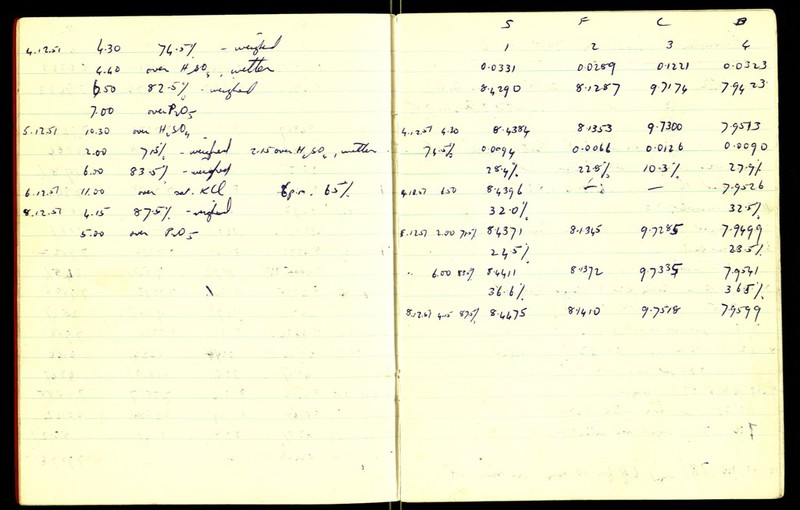 4.12.51 4.30 74.5% - weighed
4.40 over H2SO4, wetter
6.50 82.5% - weighed
7.00 over P2O5
5.12.51 10.30 over H2SO4
2.00 71.5% - weighed 2.15 over H2SO4, wetter
6.00 83.5% - weighed
6.12.51 11.00 over sat. KCl 6 p.m. 65%
8.12.51 4.15 87.5% - weighed
5.00 over P2O5
S F C B
1 2 3 4
0.0331 0.0289 0.1221 0.0323
8.4290 8.1287 9.7174 7.9423
4.12.51 4.30 8.4384 8.1353 9.7300 7.9513
74.5% 0.0094 0.0066 0.0126 0.0090
28.4% 22.8% 10.3% 27.9%
4.12.51 6.50 8.4396 — — 7.9526
32.0% 32.5%
5.12.51 2.00 71.5% 8.4371 8.1345 9.7285 7.9499
24.5% 23.5%
" 6.00 83.5% 8.4411 8.1372 9.7335 7.9541
36.6% 36.5%
8.12.51 4.15 87.5% 8.4475 8.1410 9.7518 7.9599